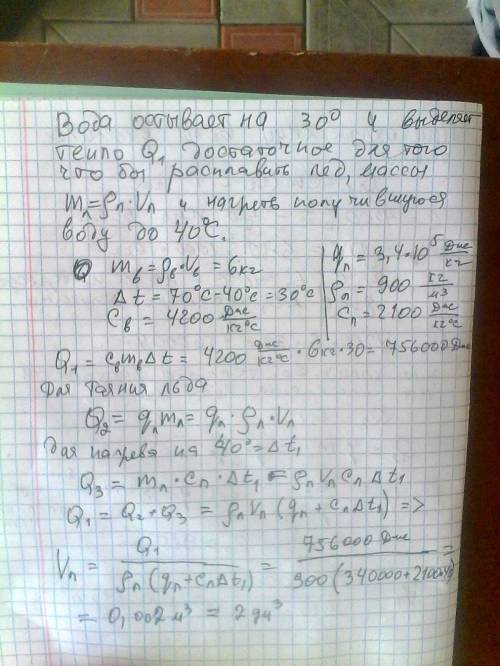 Вода остывает на 30° и выделяет
тепло Q₁ достаточное для того
что бы расплавить лёд, массой
mл=ρл·Vл и нагреть получившуюся
воду до 40°C.
mв=ρв·Vв=6кг
Δt=70°C-40°C=30°C
Cв=4200 Дж/кг°C
qл=3,4·10⁵ Дж/кг
ρл=900 кг/м³
Cл=2100 Дж/кг°C
Q₁=CвmвΔt=4200 Дж/кг°C·6кг·30=756000Дж
для таяния льда
Q₂=qлmл=qл·ρл·Vл
для нагрева на 40°=Δt₁
Q₃=mл·Cл·Δt₁=ρлVлCлΔt₁
Q₁=Q₂+Q₃=ρлVл(qл+CлΔt₁)=>
Vл=Q₁/ρл(qл+CлΔt₁)=756000Дж/900(340000+2100·40)=
=0,002м³=2дм³